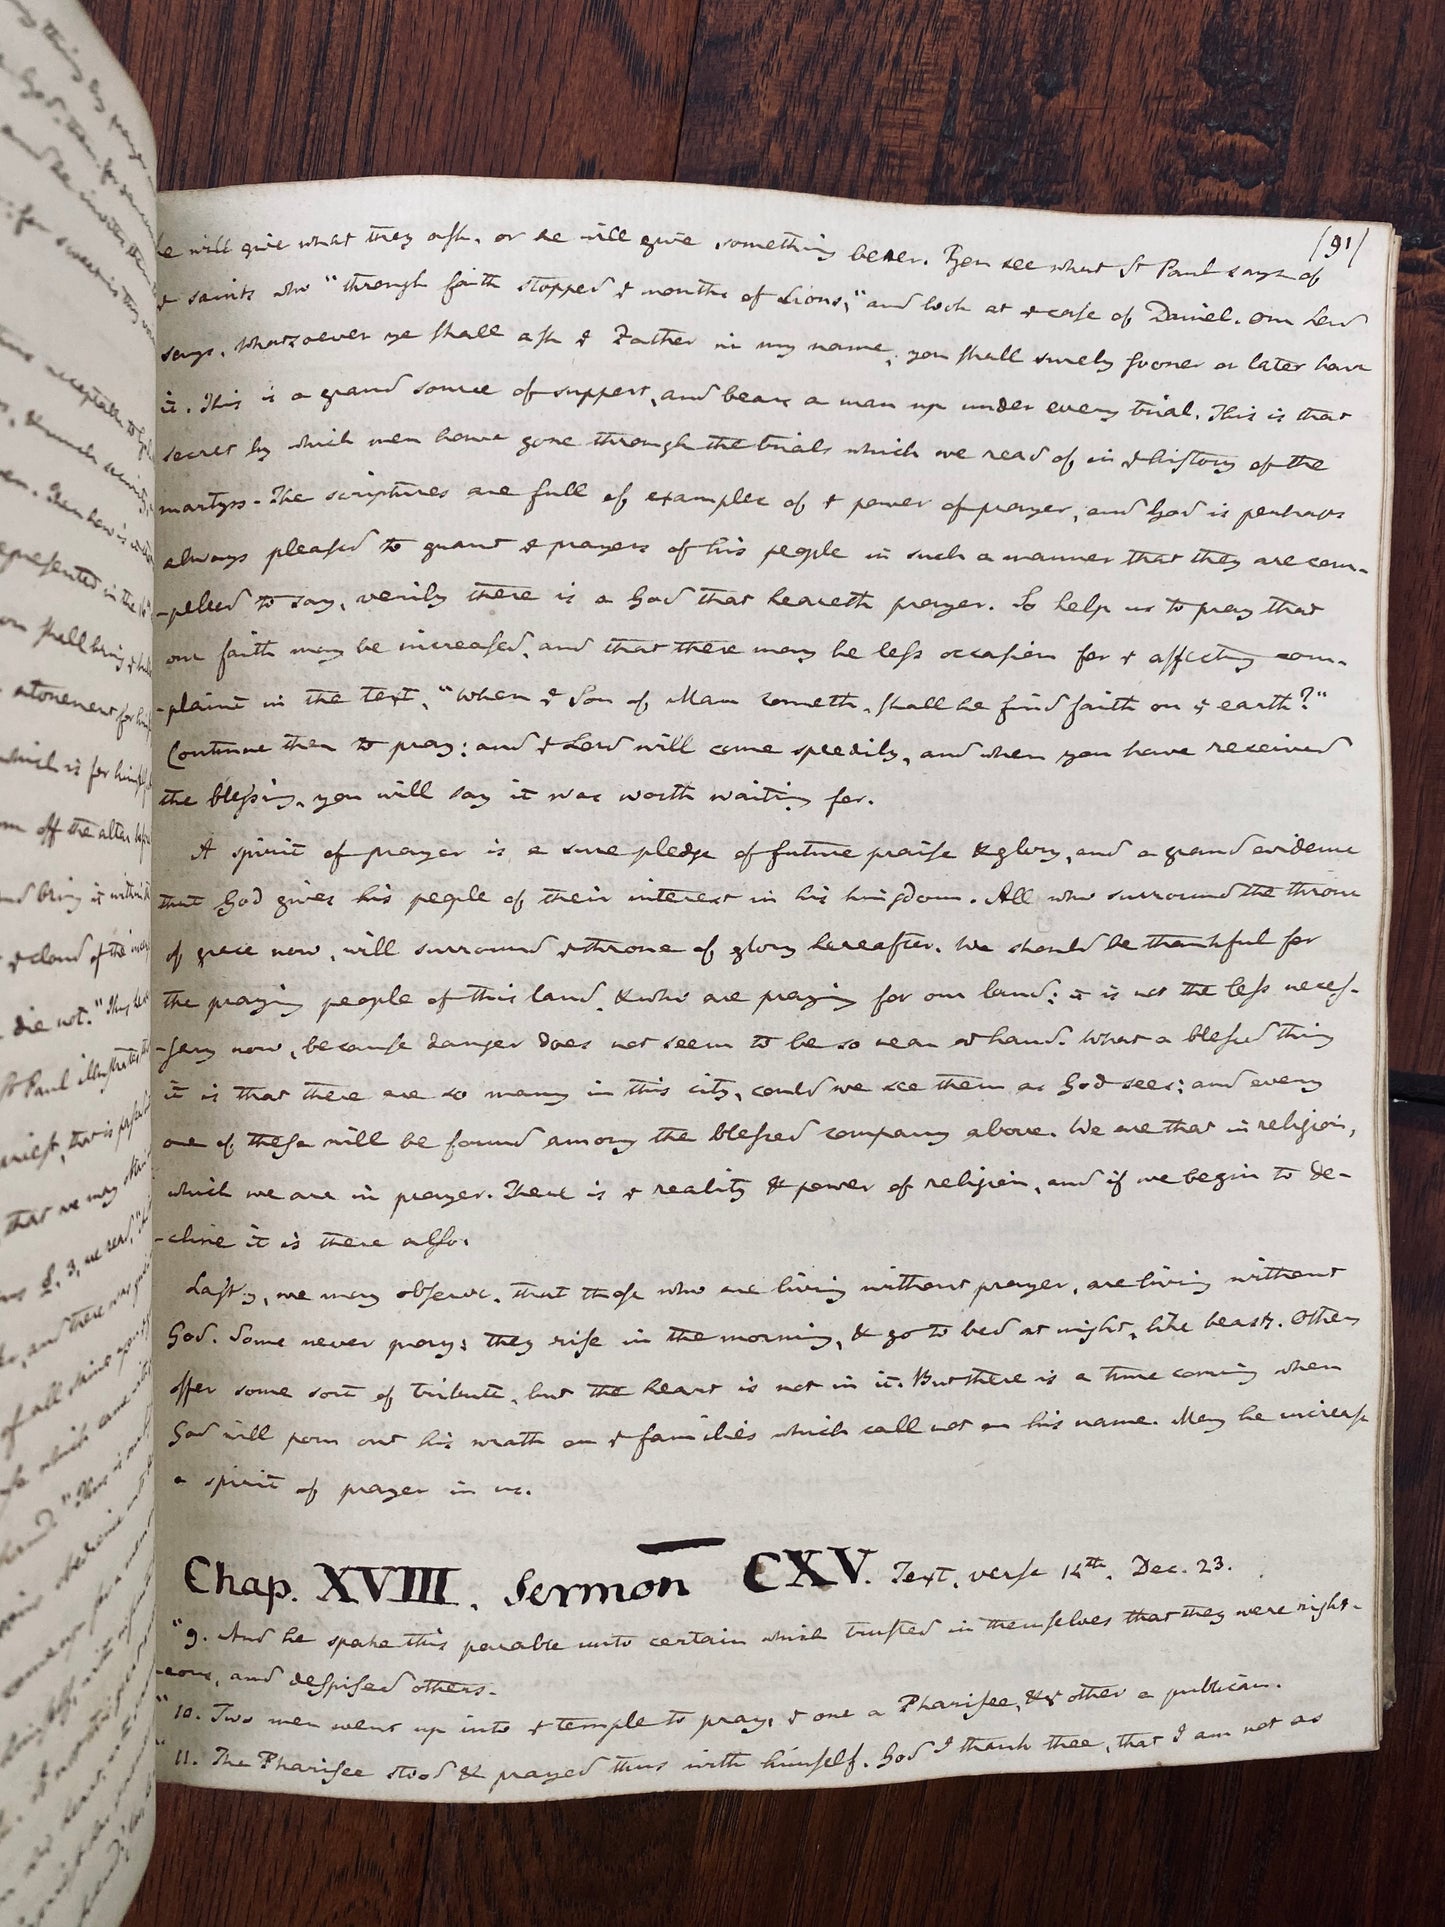 (91)
he will give what they ask, or he will give something better. You see what St Paul says of
& saints who "through faith stopped & mouths of Lions," and look at & case of Daniel. Our Lord
says, Whatsoever ye shall ask & Father in my name, you shall surely sooner or later have
it. This is a grand source of support, and bears a man up under every trial. This is that
secret by which men have gone through the trials which we read of in & history of the
martyrs. The scriptures are full of examples of & power of prayer, and God is perhaps
always pleased to grant & prayers of his people in such a manner that they are com-
-pelled to say, verily there is a God that heareth prayer. So help us to pray that
our faith may be increased, and that there may be less occasion for & affecting com-
-plaint in the text, "When & Son of Man cometh, shall he find faith on & earth?"
Continue then to pray; and & Lord will come speedily, and when you have received
the blessing, you will say it was worth waiting for.
A spirit of prayer is a sure pledge of future praise & glory, and a grand evidence
that God gives his people of their interest in his kingdom. All who surround the throne
of grace now, will surround & throne of glory hereafter. We should be thankful for
the praying people of this land, & who are praying for our land; it is not the less neces-
-sary now, because danger does not seem to be so near at hand. What a blessed thing
it is that there are so many in this city, could we see them as God sees; and every
one of these will be found among the blessed company above. We are that in religion,
which we are in prayer. There is & reality & power of religion, and if we begin to de-
-cline it is there also.
Lastly, we may observe, that those who are living without prayer, are living without
God. Some never pray; they rise in the morning, & go to bed at night, like beasts. Others
offer some sort of tribute, but the heart is not in it. But there is a time coming when
God will pour out his wrath on & families which call not on his name. May he increase
a spirit of prayer in us.
Chap. XVIII. Sermon CXV. Text, verse 14th. Dec. 23.
"9. And he spake this parable unto certain which trusted in themselves that they were right-
-eous, and despised others.
"10. Two men went up into & temple to pray, & one a Pharisee, & & other a publican.
"11. The Pharisee stood & prayed thus with himself. God I thank thee, that I am not as